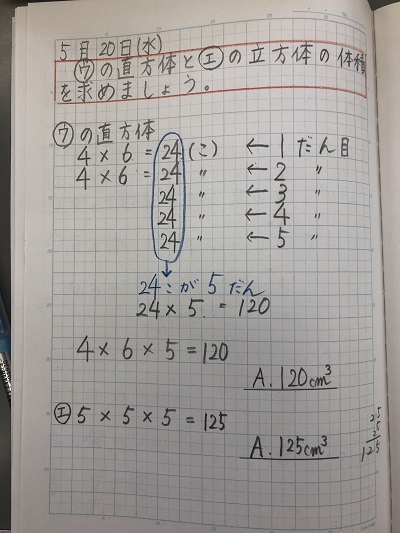 5月20日(水)
㋒の直方体と㋓の立方体の体積
を求めましょう。
㋒の直方体
4×6=24(こ) ←1だん目
4×6=24 〃 ←2 〃
24 〃 ←3 〃
24 〃 ←4 〃
24 〃 ←5 〃
24こが5だん
24×5=120
4×6×5=120
A. 120cm³
㋓5×5×5=125
A. 125cm³
25
5
2
125